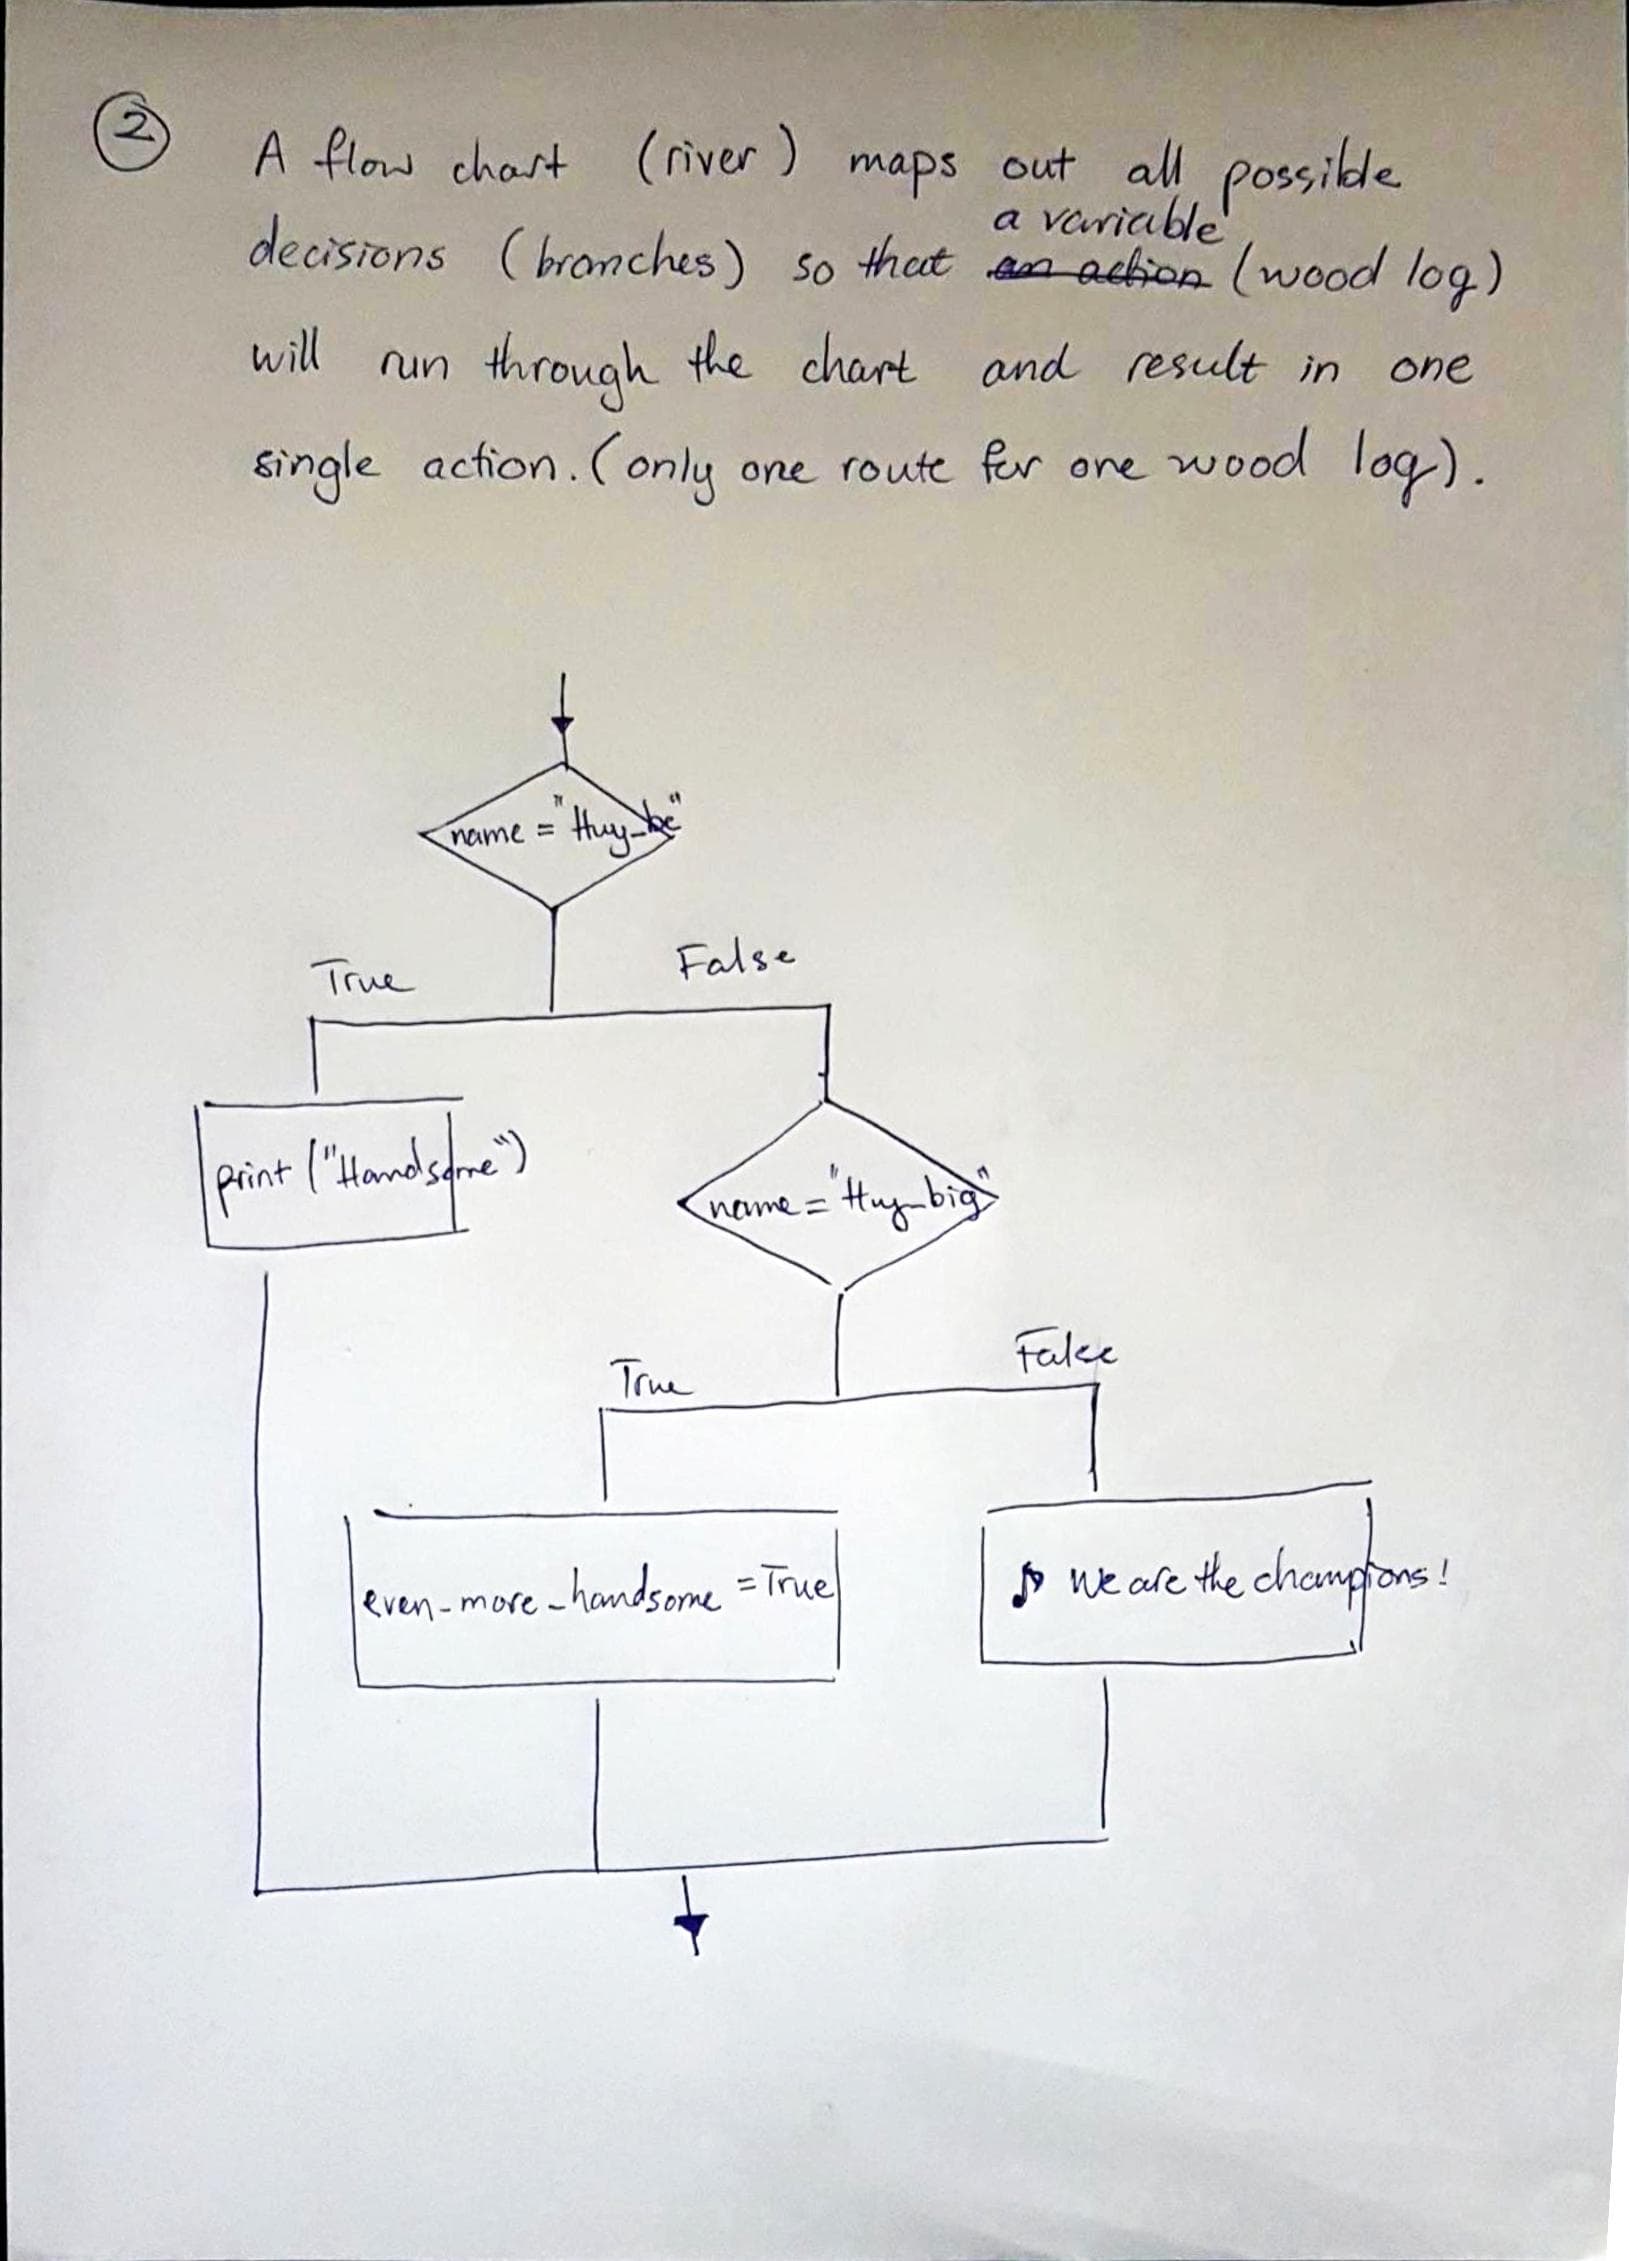 2
A flow chart (river) maps out all possible
a variable
decisions (branches) so that an action (wood log)
will run through the chart and result in one
single action. (only one route for one wood log).
name = "Huy_be"
True False
print ("Handsome")
name = "Huy_big"
True False
even_more_handsome = True
♪ We are the champions!